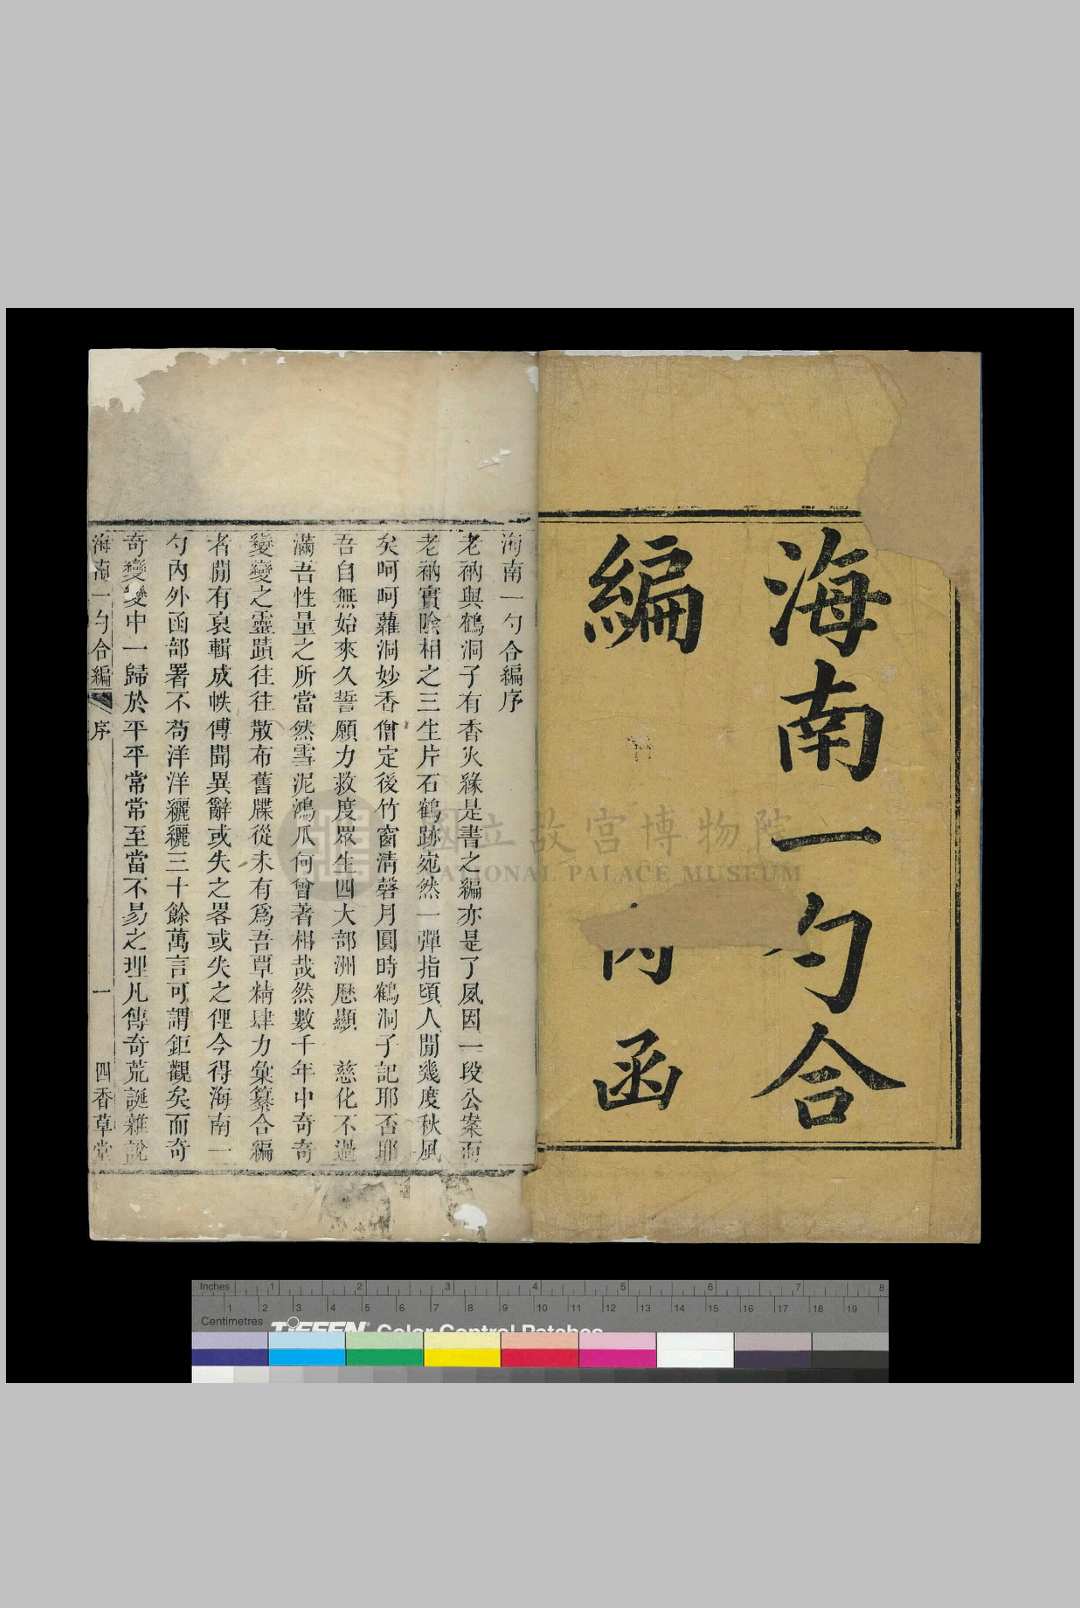 海南一勺合
編 內函
海南一勺合編序
老衲與鶴洞子有香火緣是書之編亦是了夙因一段公案而
老衲實陰相之三生片石鶴跡宛然一彈指頃人閒幾度秋風
矣呵呵蘿洞妙香僧定後竹窗清磬月圓時鶴洞子記耶否耶
吾自無始來久誓願力救度眾生四大部洲歷顯 慈化不過
滿吾性量之所當然雪泥鴻爪何曾著相哉然數千年中奇奇
變變之靈蹟往往散布舊牒從未有為吾覃精肆力彙纂合編
者閒有裒輯成帙傳聞異辭或失之畧或失之俚今得海南一
勺內外函部署不苟洋洋纚纚三十餘萬言可謂鉅觀矣而奇
奇變變中一歸於平平常常至當不易之理凡傳奇荒誕雜說
海南一勺合編 序 一 四香草堂
國立故宮博物院
NATIONAL PALACE MUSEUM
Inches 1 2 3 4 5 6 7 8
Centimetres 1 2 3 4 5 6 7 8 9 10 11 12 13 14 15 16 17 18 19
TIFFEN Color Control Patches